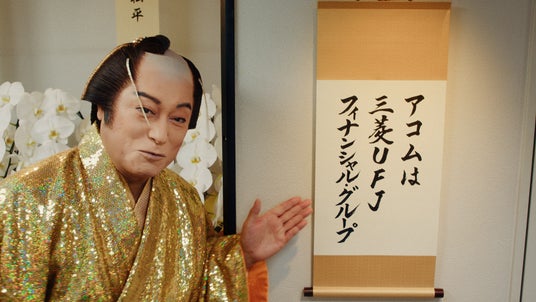 アコムは
三菱UFJ
フィナンシャル・グループ